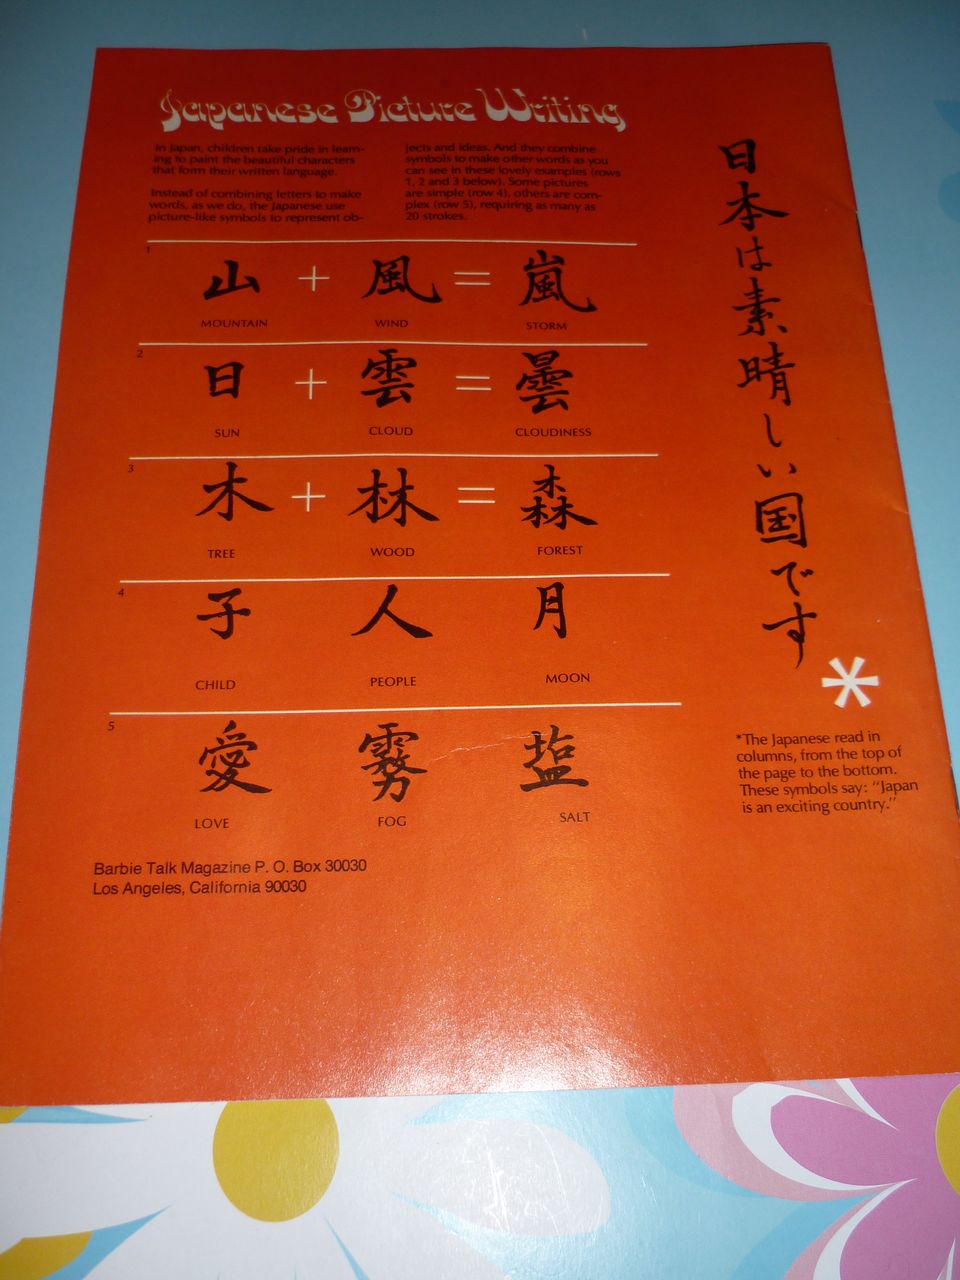 Japanese Picture Writing
In Japan, children take pride in learn-
ing to paint the beautiful characters
that form their written language.
Instead of combining letters to make
words, as we do, the Japanese use
picture-like symbols to represent ob-
jects and ideas. And they combine
symbols to make other words as you
can see in these lovely examples (rows
1, 2 and 3 below). Some pictures
are simple (row 4), others are com-
plex (row 5), requiring as many as
20 strokes.
1
山 + 風 = 嵐
MOUNTAIN WIND STORM
2
日 + 雲 = 曇
SUN CLOUD CLOUDINESS
3
木 + 林 = 森
TREE WOOD FOREST
4
子 人 月
CHILD PEOPLE MOON
5
愛 霧 塩
LOVE FOG SALT
日本は素晴しい国です
*
*The Japanese read in
columns, from the top of
the page to the bottom.
These symbols say: "Japan
is an exciting country."
Barbie Talk Magazine P. O. Box 30030
Los Angeles, California 90030